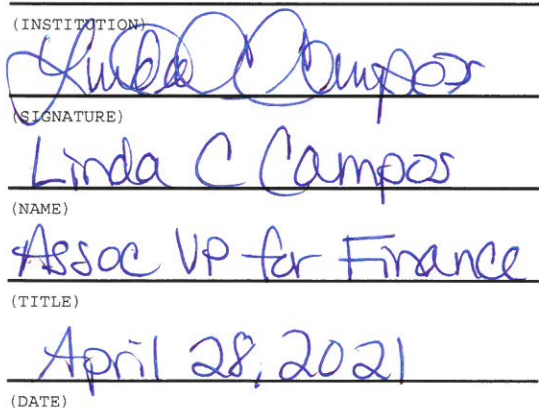 (INSTITUTION)
Linda C Campos
(SIGNATURE)
Linda C Campos
(NAME)
Assoc VP for Finance
(TITLE)
April 28, 2021
(DATE)